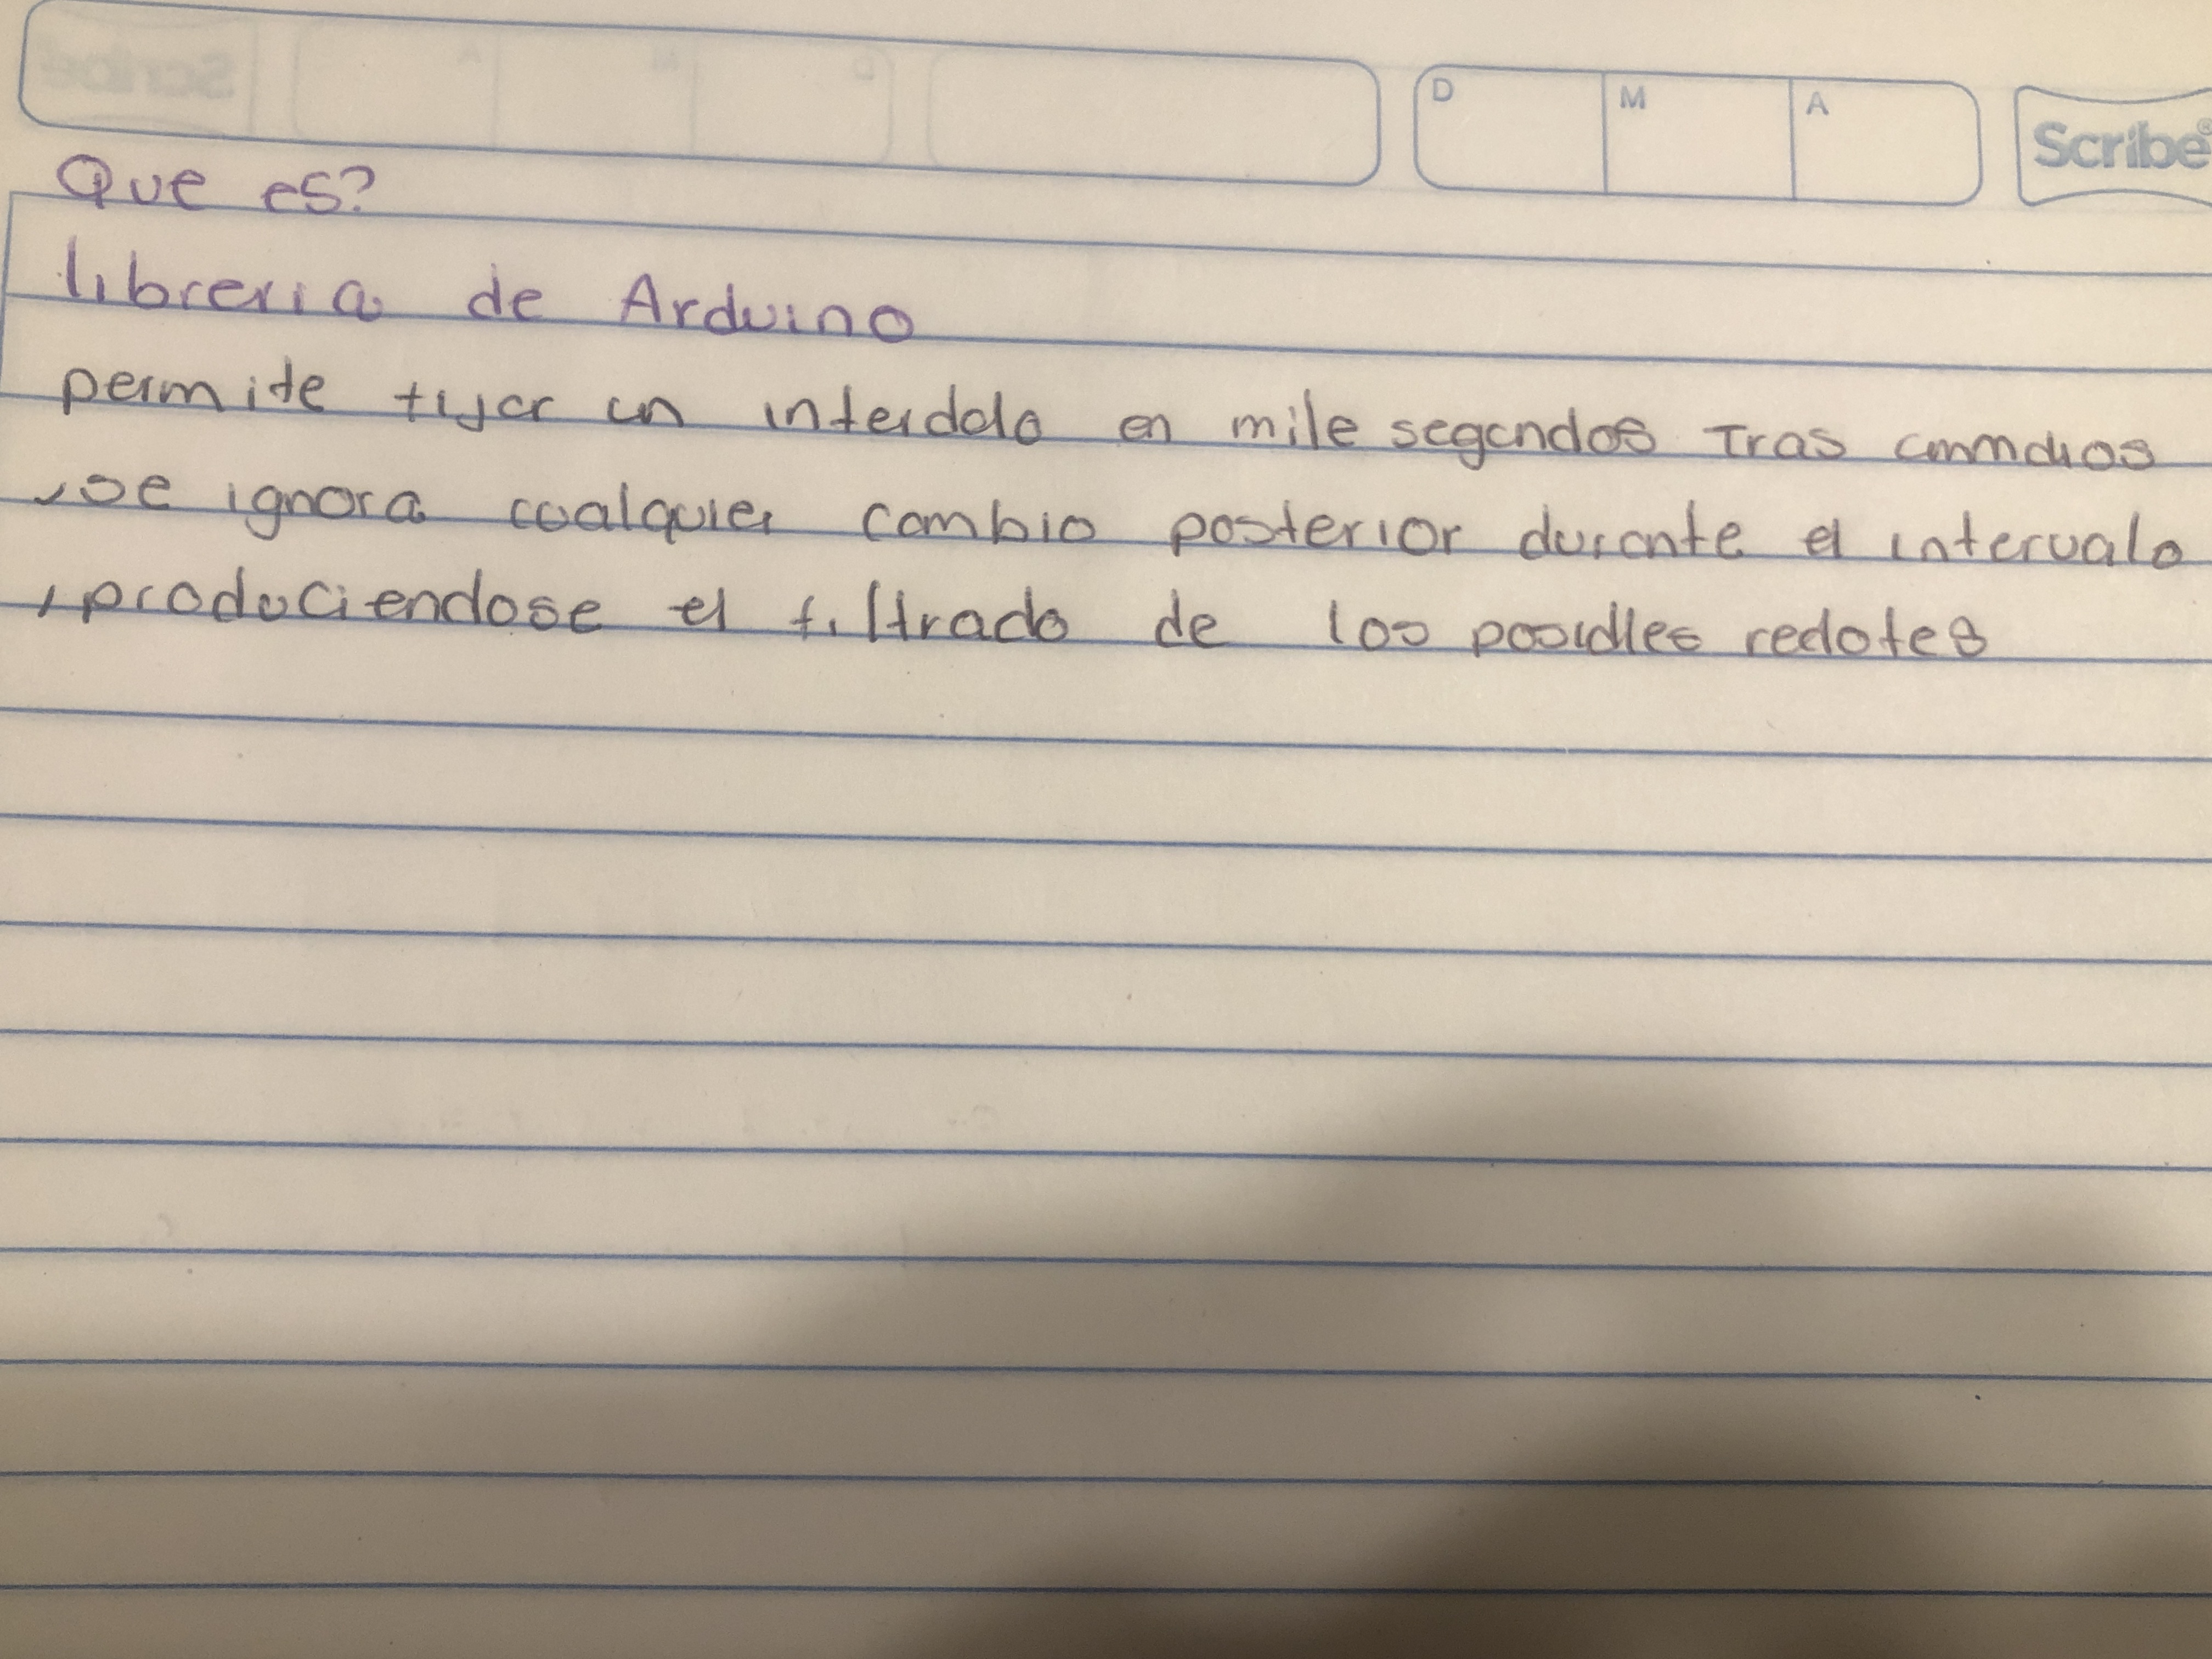 D M A Scribe®
Que es?
libreria de Arduino
permite fijar un interdalo en mile segundos Tras
, se ignora cualquier cambio posterior durante el intervalo
, produciendose el filtrado de los posidles redotes